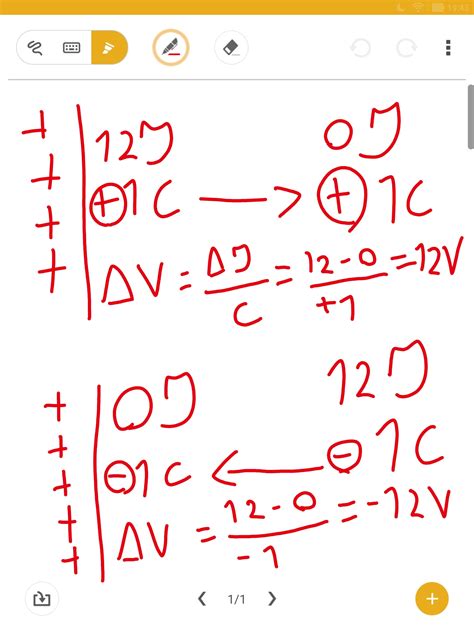 12J 0J
+ ⊕1C → ⊕1C
+ ΔV = ΔJ/C = 12-0/+1 = 12V
+
+
0J 12J
+ ⊖1C ← ⊖1C
+ ΔV = 12-0/-1 = -12V
+
+
+
1/1